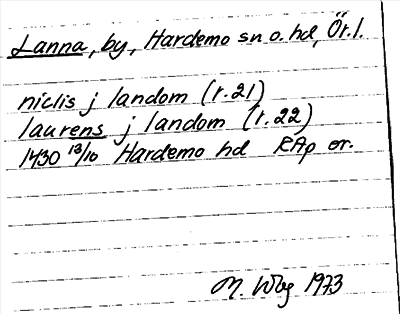 Lanna, by, Hardemo sn o. hd, Ör. l.
niclis j landom (r. 21)
laurens j landom (r. 22)
1430 13/10 Hardemo hd RAp or.
M. Wbg 1973